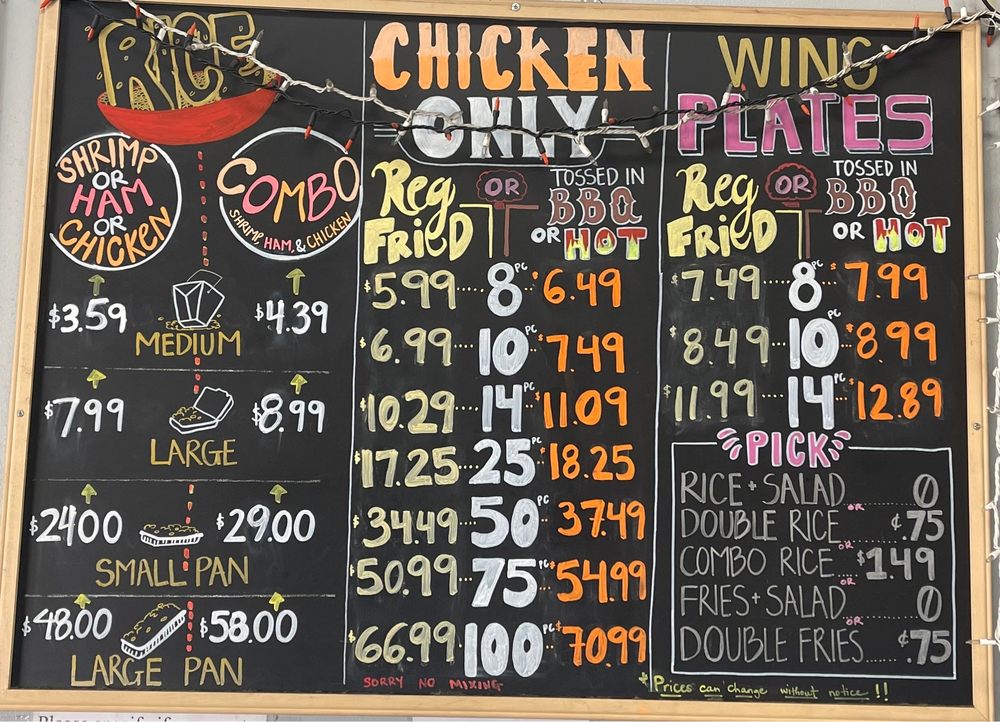 RICE
SHRIMP
OR
HAM
OR
CHICKEN
COMBO
SHRIMP, HAM, & CHICKEN
$3.59 $4.39
MEDIUM
$7.99 $8.99
LARGE
$24.00 $29.00
SMALL PAN
$48.00 $58.00
LARGE PAN
CHICKEN
ONLY
Reg Fried OR TOSSED IN BBQ OR HOT
$5.99 8PC $6.49
$6.99 10PC $7.49
$10.29 14PC $11.09
$17.25 25PC $18.25
$34.49 50PC 37.49
$50.99 75PC $54.99
$66.99 100PC $70.99
SORRY NO MIXING
WING
PLATES
Reg Fried OR TOSSED IN BBQ OR HOT
$7.49 8PC $7.99
$8.49 10PC $8.99
$11.99 14PC $12.89
PICK
RICE + SALAD 0
OR
DOUBLE RICE ¢.75
OR
COMBO RICE $1.49
OR
FRIES + SALAD 0
OR
DOUBLE FRIES ¢.75
*Prices can change without notice!!